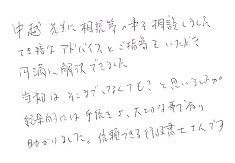 中越先生に相続等の事を相談しました
てき確なアドバイスとご指導をいただき
円満に解決できました
当初は、そこまでしなくても？と思いましたが
結果的には手続きよ、大切な事であり
助かりました。信頼できる行政書士さんです